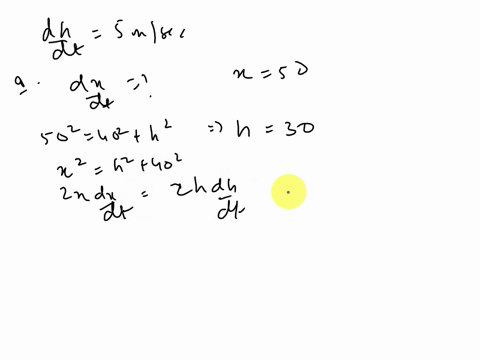 dh/dt = 5 m/sec
a. dx/dt =? x = 50
50² = 40² + h² => h = 30
x² = h² + 40²
2x dx/dt = 2h dh/dt